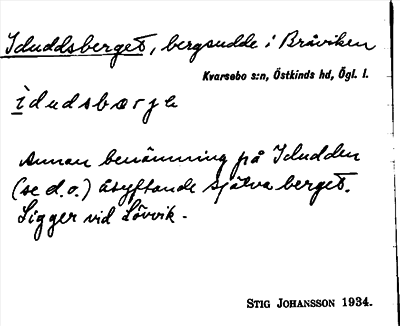 Iduddsberget, bergsudde i Bråviken
Kvarsebo s:n, Östkinds hd, Ögl. l.
ìdudsbærjɛ
Annan benämning på Idudden
(se d.o.) åsyftande själva berget.
Ligger vid Lövvik.
STIG JOHANSSON 1934.